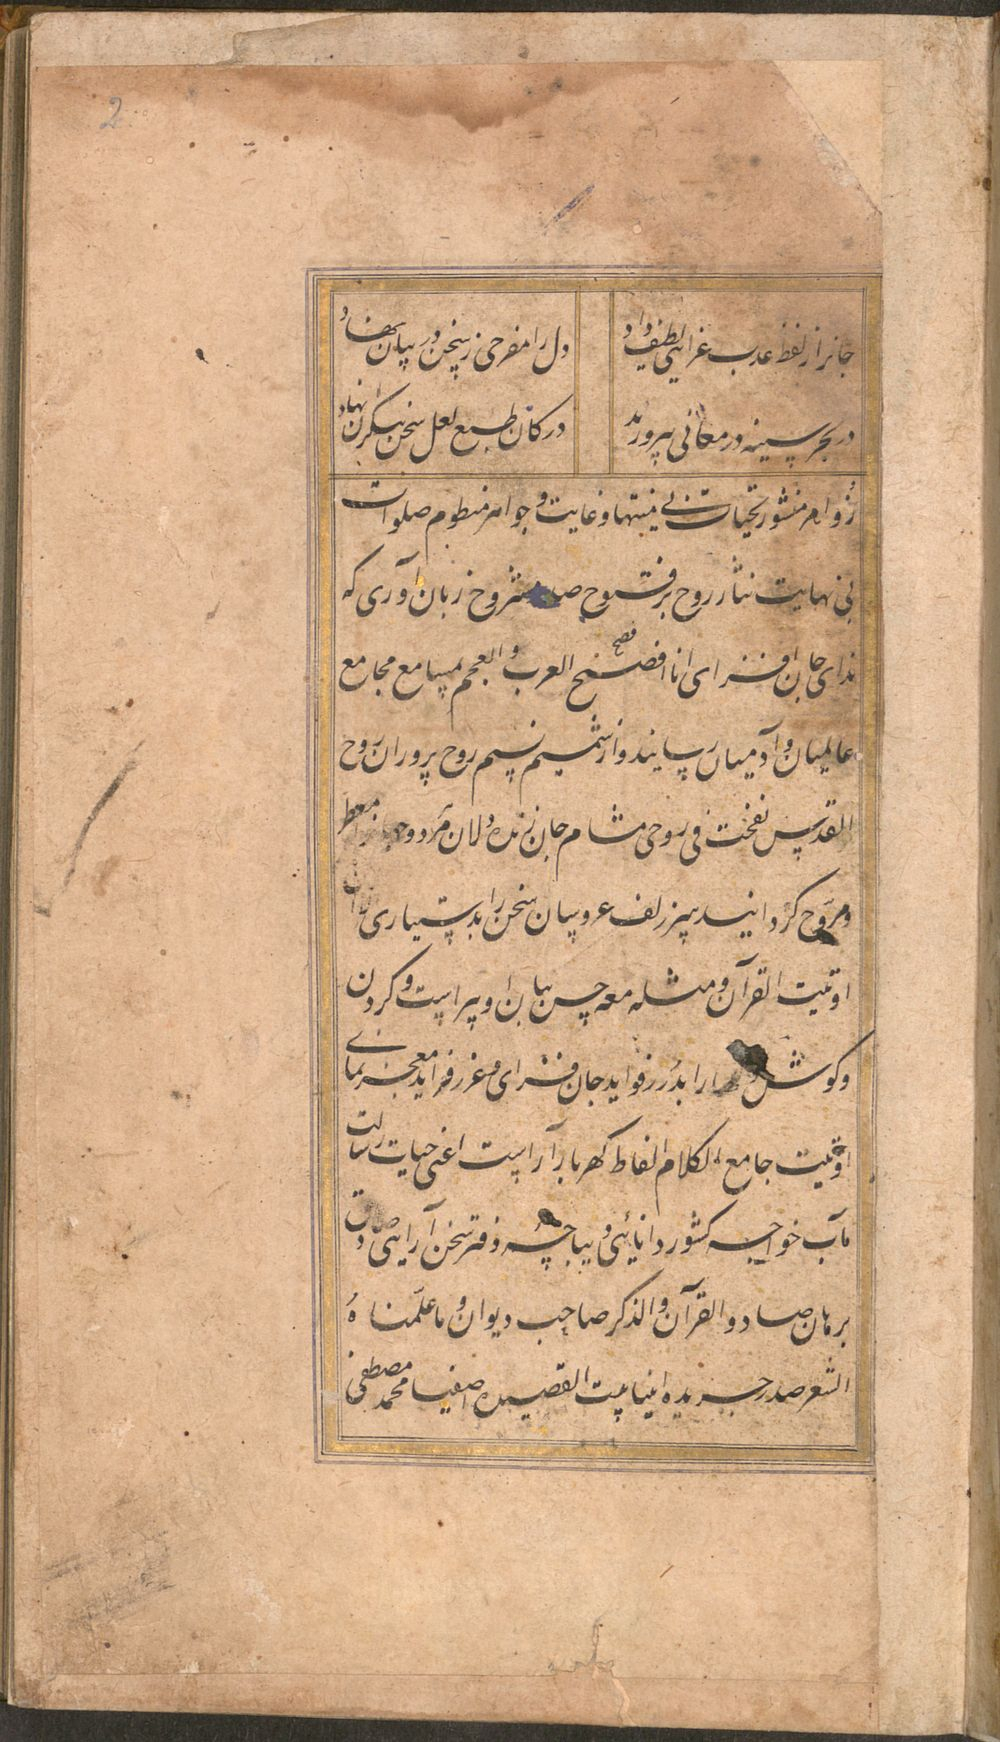 2
جانرا ز لفظ عذب غذایی لطیف داد
دل را مفرحی ز سخن در بیان نهاد
در بحر سینه در معانی بپرورید
در کان طبع لعل سخن بیکران نهاد
زواهر منثور تحیات بی منتها و غایت و جواهر منظوم صلوات
بی نهایت نثار روح پر فتوح صدر زبان آوری که
ندای جان افزای انا افصح العرب و العجم بمسامع مجامع
عالمیان و آدمیان رسانید و از شمیم نسیم روح پرور ان روح
القدس نفخت فی روحی مشام جان زنده دلان هر دو جهانرا معطر
و مروح گردانید سر زلف عروسان سخن را بدستیاری
اوتیت القرآن و مثله معه حسن بیان او پیراست و گردن
و گوش را بدرر فواید جان فزای و غرر فراید معجز نمای
اوتیت جامع الکلام الفاظ گهربار آراست اعنی جناب رسالت
مآب خواجه کشور دانائی و دیباچه دفتر سخن آرایی صادق
برهان صاد و القرآن و الذکر صاحب دیوان و ما علمناه
الشعر صدر جریده انبیا بیت القصیده اصفیا محمد مصطفی